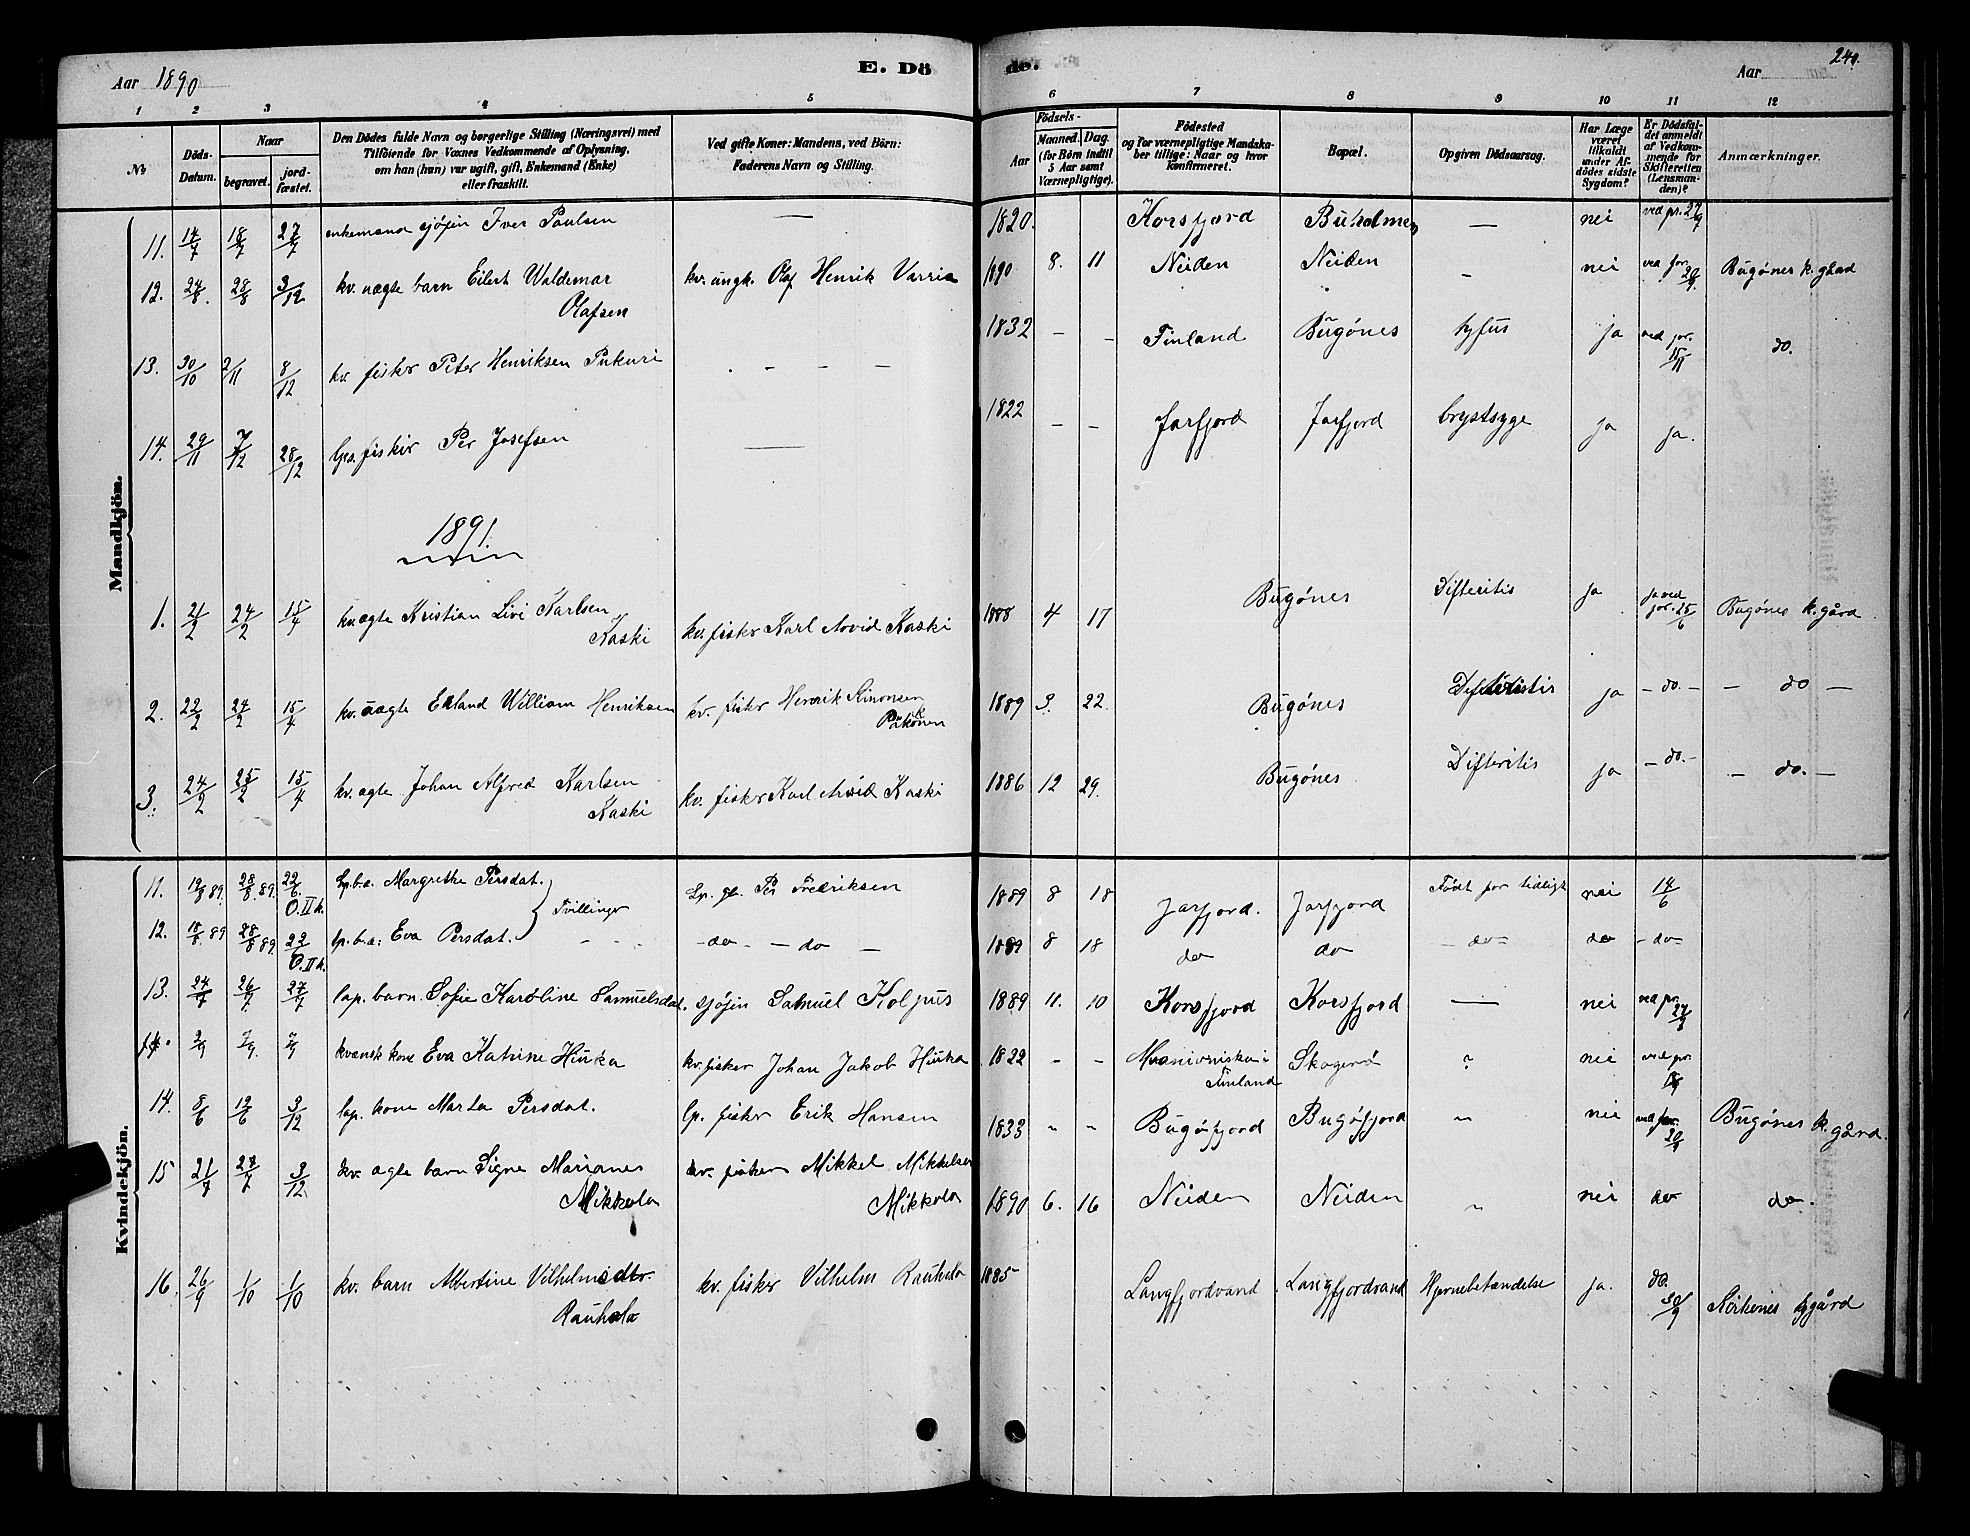 Aar 1890
E. Dö
de.
Aar
240.
1 2 3 4 5 6 7 8 9 10 11 12
No
Döds-Datum.
Naar
begravet.
jord-fæstet.
Den Dödes fulde Navn og borgerlige Stilling (Næringsvei) med
Tilföiende for Voxnes Vedkommende af Oplysning,
om han (hun) var ugift, gift, Enkemand (Enke)
eller fraskilt.
Ved gifte Koner: Mandens, ved Börn:
Faderens Navn og Stilling.
Födsels-
Aar
Maaned. Dag.
(for Börn indtil
5 Aar samt
Værnepligtige).
Födested
og for værnepligtige Mandska-
ber tillige: Naar og hvor
konfirmeret.
Bopæl.
Opgiven Dödsaarsag.
Har Læge
været
tilkaldt
under Af-
dödes sidste
Sygdom?
Er Dödsfal-
det anmeldt
af Vedkom-
mende for
Skifteretten
(Lensman-
den)?
Anmærkninger.
Mandkjön.
11. 14/7 18/7 27/7 enkemand sjøfin Iver Paulsen — 1820. Korsfjord Buholmen — nei ved pr. 27/9
12. 24/8. 28/8 3/12 kv. uægte barn Eilert Waldemar Olafsen kv. ungk. Olaf Henrik Varria 1890 8. 11 Neiden Neiden - nei ved for. 20/9 Bugønes k. gaad
13. 30/10 2/11 8/12 kv. fisker Peter Henriksen Pukuri - - - - 1832 - - Finland Bugønes tyfus ja ved for. 15/11 do.
14. 29/11 7/12 28/12 lps. fisker Per Josefsen — 1822 - - Jarfjord Jarfjord brystsyge ja ja.
1891.
1. 21/2 24/2 15/4 kv. ægte Kristian Livi Karlsen Kaski kv. fisker Karl Arvid Kaski 1888 4 17 Bugønes Difteritis ja ja ved for. 25/6 Bugønes k. gård.
2. 22/2 24/2 15/4 kv. uægte Erland William Henriksen kv. fisker Henrik Simonsen Päkönen 1889 3. 22. Bugønes Difteritis ja - do. - - do -
3. 24/2 25/2 15/4 kv. ægte Johan Alfred Karlsen Kaski kv. fisker Karl Arvid Kaski 1886 12 29. Bugønes Difteritis ja - do. - - do. -
Kvindekjön.
11. 19/8 89. 28/8. 89. 22/6. O. II k. Lp. b. æ. Margrethe Persdat. Tvillinger Lp. gl. Per Fredriksen 1889 8 18 Jarfjord. Jarfjord Født for tidligt nei 14/6
12. 18/8. 89 28/8 89. 22/6 O. II k. lp. b. æ: Eva Persdat. - - - - do - - do - 1889 8 18 do do - do - do - do -
13. 24/7 26/7. 27/7 lap. barn. Sofie Karoline Samuelsdat. sjøfin Samuel Kolpus 1889 11. 10 Korsfjord Korsfjord — nei ved pr. 27/9
14. 3/9 7/9. 7/9 kvænsk kone Eva Katrine Hiuka kv. fisker Johan Jakob Hiuka 1822 - - Muonioniska i Finland Skogerø " nei ved pr.
14. 8/6 12/6 3/12 lap. kone Marta Persdat. lp. fisker Erik Hansen 1833 " " Bugøfjord Bugøfjord " nei ved for. 20/9 Bugønes k. gård.
15 21/7 27/7 3/12 kv. ægte barn Signe Marianes Mikkola kv. fisker Mikkel Mikkelsen Mikkola 1890 6. 16 Neiden Neiden " nei do do.
16. 26/9 1/10 1/10 kv. barn Albertine Vilhelmsdtr. Rauhala kv. fisker Vilhelm Rauhala 1885 Langfjordvand Langfjordvand Hjernebetændelse ja. do. 30/9 Kirkenes kgård